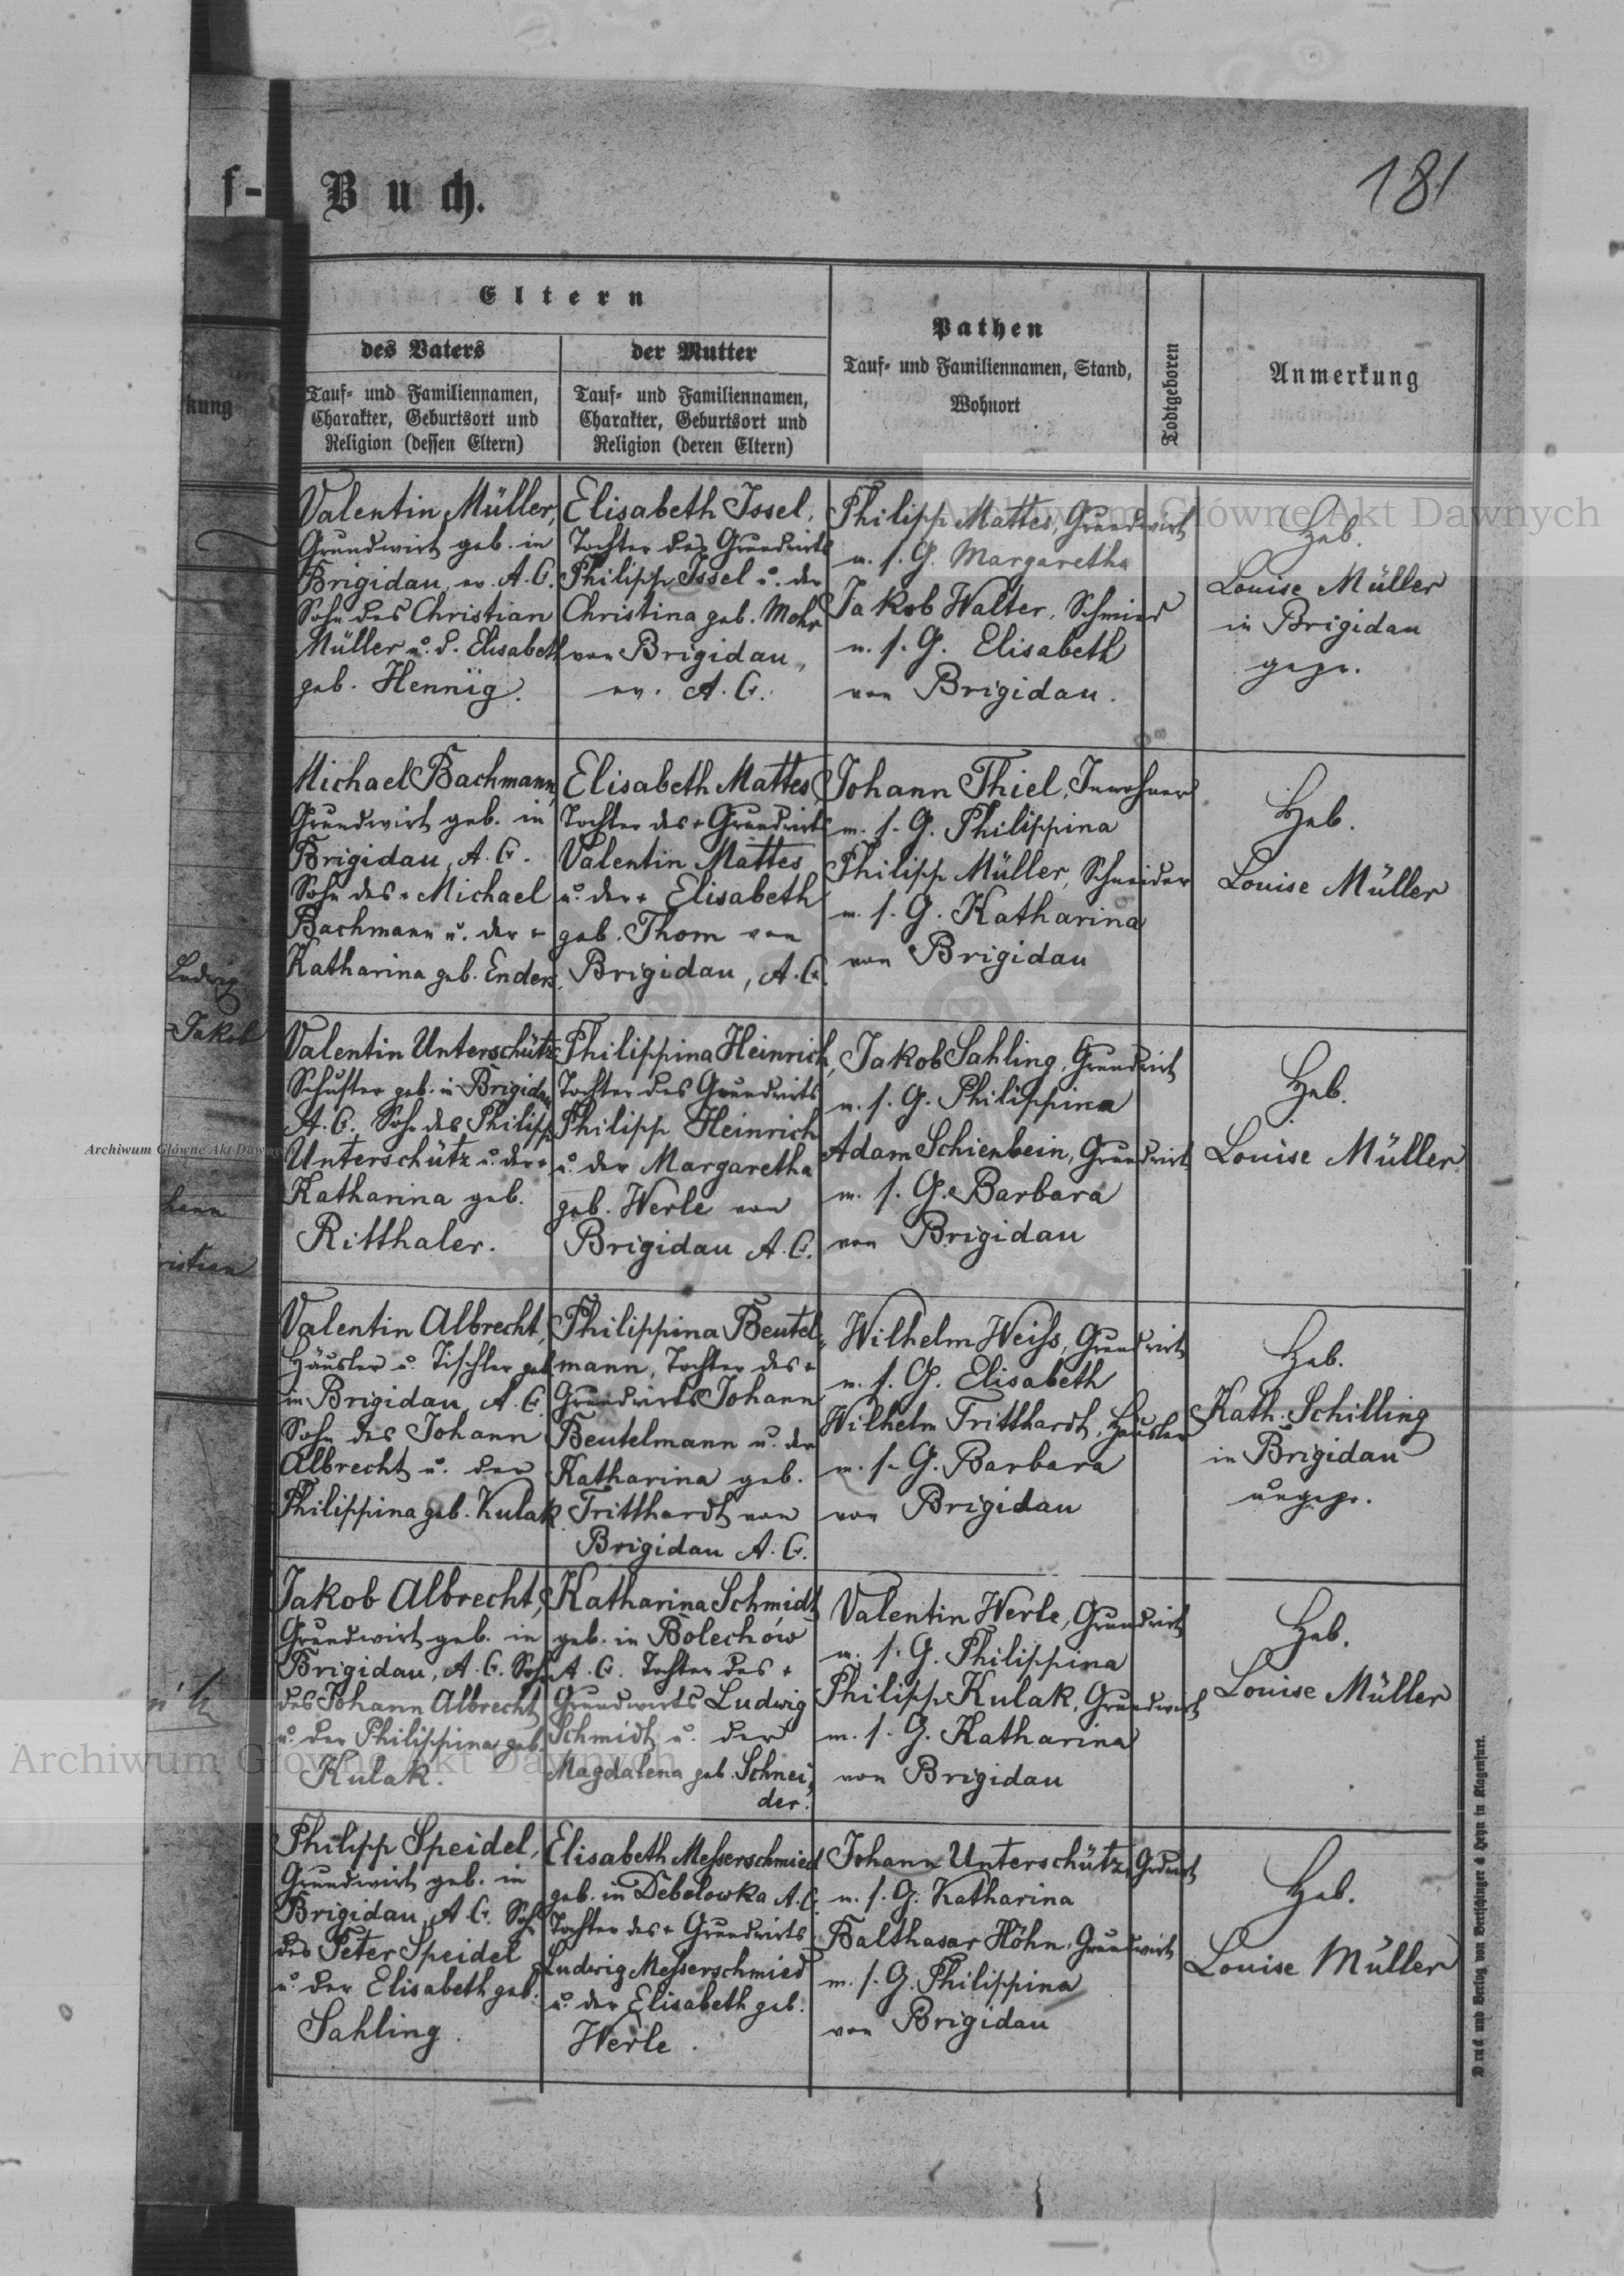 f-
Buch.
181
Eltern
des Vaters
der Mutter
Tauf- und Familiennamen,
Charakter, Geburtsort und
Religion (dessen Eltern)
Tauf- und Familiennamen,
Charakter, Geburtsort und
Religion (deren Eltern)
Pathen
Tauf- und Familiennamen, Stand,
Wohnort
Todtgeboren
Anmerkung
kung
Valentin Müller,
Grundwirt geb. in
Brigidau, ev. A. C.
Sohn des Christian
Müller u. d. Elisabeth
geb. Hennig.
Elisabeth Issel,
Tochter des Grundwirts
Philipp Issel u. der
Christina geb. Mohr
von Brigidau,
ev. A. C.
Philipp Mattes, Grundwirt
u. s. G. Margaretha
Jakob Walter, Schmied
u. s. G. Elisabeth
von Brigidau.
Heb.
Louise Müller
in Brigidau
gepr.
Michael Bachmann,
Grundwirt geb. in
Brigidau, A. C.
Sohn des + Michael
Bachmann u. der +
Katharina geb. Enders.
Elisabeth Mattes,
Tochter des + Grundwirts
Valentin Mattes
u. der + Elisabeth
geb. Thom von
Brigidau, A. C.
Johann Thiel, Inwohner
m. s. G. Philippina
Philipp Müller, Schneider
m. s. G. Katharina
von Brigidau
Heb.
Louise Müller
Ludwig
Jakob
Valentin Unterschütz
Schuster geb. in Brigidau
A. C. Sohn des Philipp
Unterschütz u. der +
Katharina geb.
Ritthaler.
Philippina Heinrich,
Tochter des Grundwirts
Philipp Heinrich
u. der Margaretha
geb. Werle von
Brigidau A. C.
Jakob Sahling, Grundwirt
u. s. G. Philippina
Adam Schienbein, Grundwirt
m. s. G. Barbara
von Brigidau
Heb.
Louise Müller
hann
ristian
Valentin Albrecht,
Häusler u. Tischler geb.
in Brigidau, A. C.
Sohn des Johann
Albrecht u. der
Philippina geb. Kulak
Philippina Beutel-
mann, Tochter des +
Grundwirts Johann
Beutelmann u. der
Katharina geb.
Tritthardt von
Brigidau A. C.
Wilhelm Weiss, Grundwirt
m. s. G. Elisabeth
Wilhelm Tritthardt, Häusler
m. s. G. Barbara
von Brigidau
Heb.
Kath. Schilling
in Brigidau
ungepr.
Jakob Albrecht,
Grundwirt geb. in
Brigidau, A. C. Sohn
des Johann Albrecht
u. der Philippina geb.
Kulak.
Katharina Schmidt
geb. in Bolechów
A. C. Tochter des +
Grundwirts Ludwig
Schmidt u. der
Magdalena geb. Schnei-
der.
Valentin Werle, Grundwirt
m. s. G. Philippina
Philipp Kulak, Grundwirt
m. s. G. Katharina
von Brigidau
Heb.
Louise Müller
Philipp Speidel,
Grundwirt geb. in
Brigidau, A. C. Sohn
des Peter Speidel
u. der Elisabeth geb.
Sahling.
Elisabeth Messerschmied
geb. in Debolowka A. C.
Tochter des + Grundwirts
Ludwig Messerschmied
u. der Elisabeth geb.
Werle.
Johann Unterschütz, Grdwirt
u. s. G. Katharina
Balthasar Höhn, Grundwirt
m. s. G. Philippina
von Brigidau
Heb.
Louise Müller
Druck und Verlag von Bertschinger & Heyn in Klagenfurt.
Archiwum Główne Akt Dawnych
Archiwum Główne Akt Dawnych
Archiwum Główne Akt Dawnych